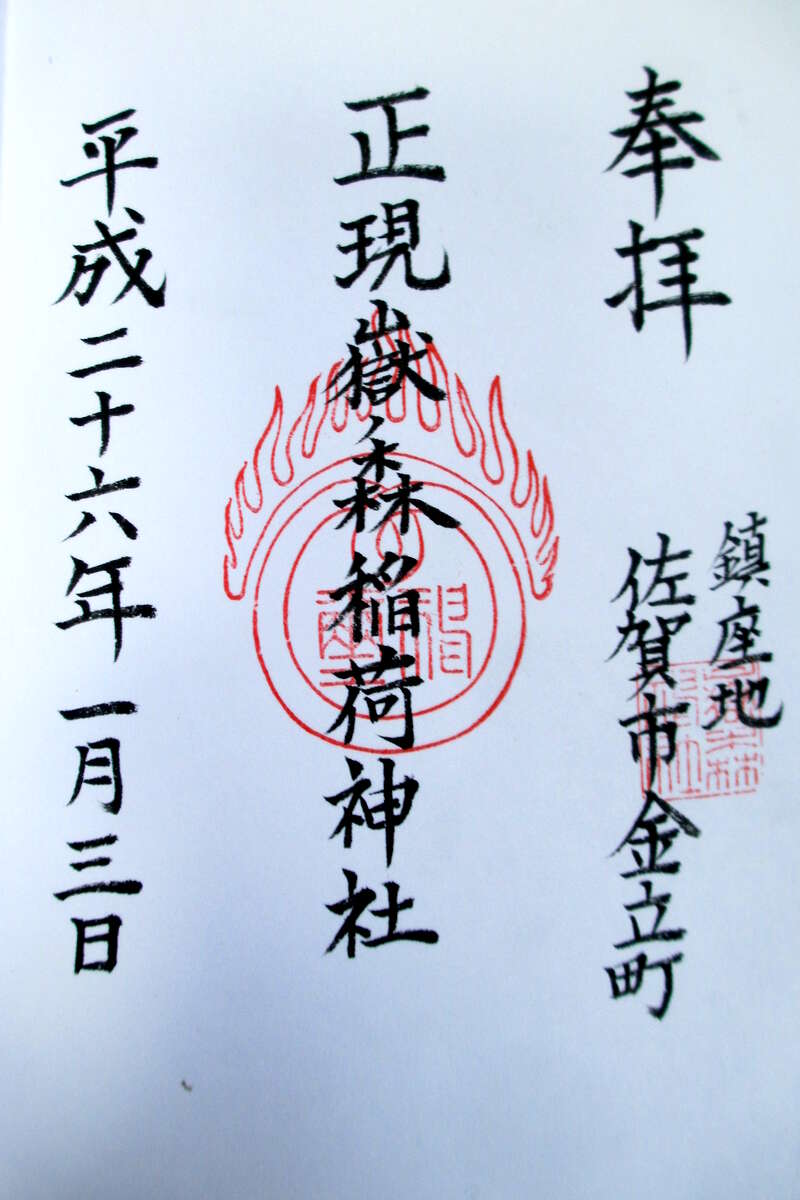 奉拝
鎮座地
佐賀市金立町
正現嶽ノ森稲荷神社
平成二十六年一月三日